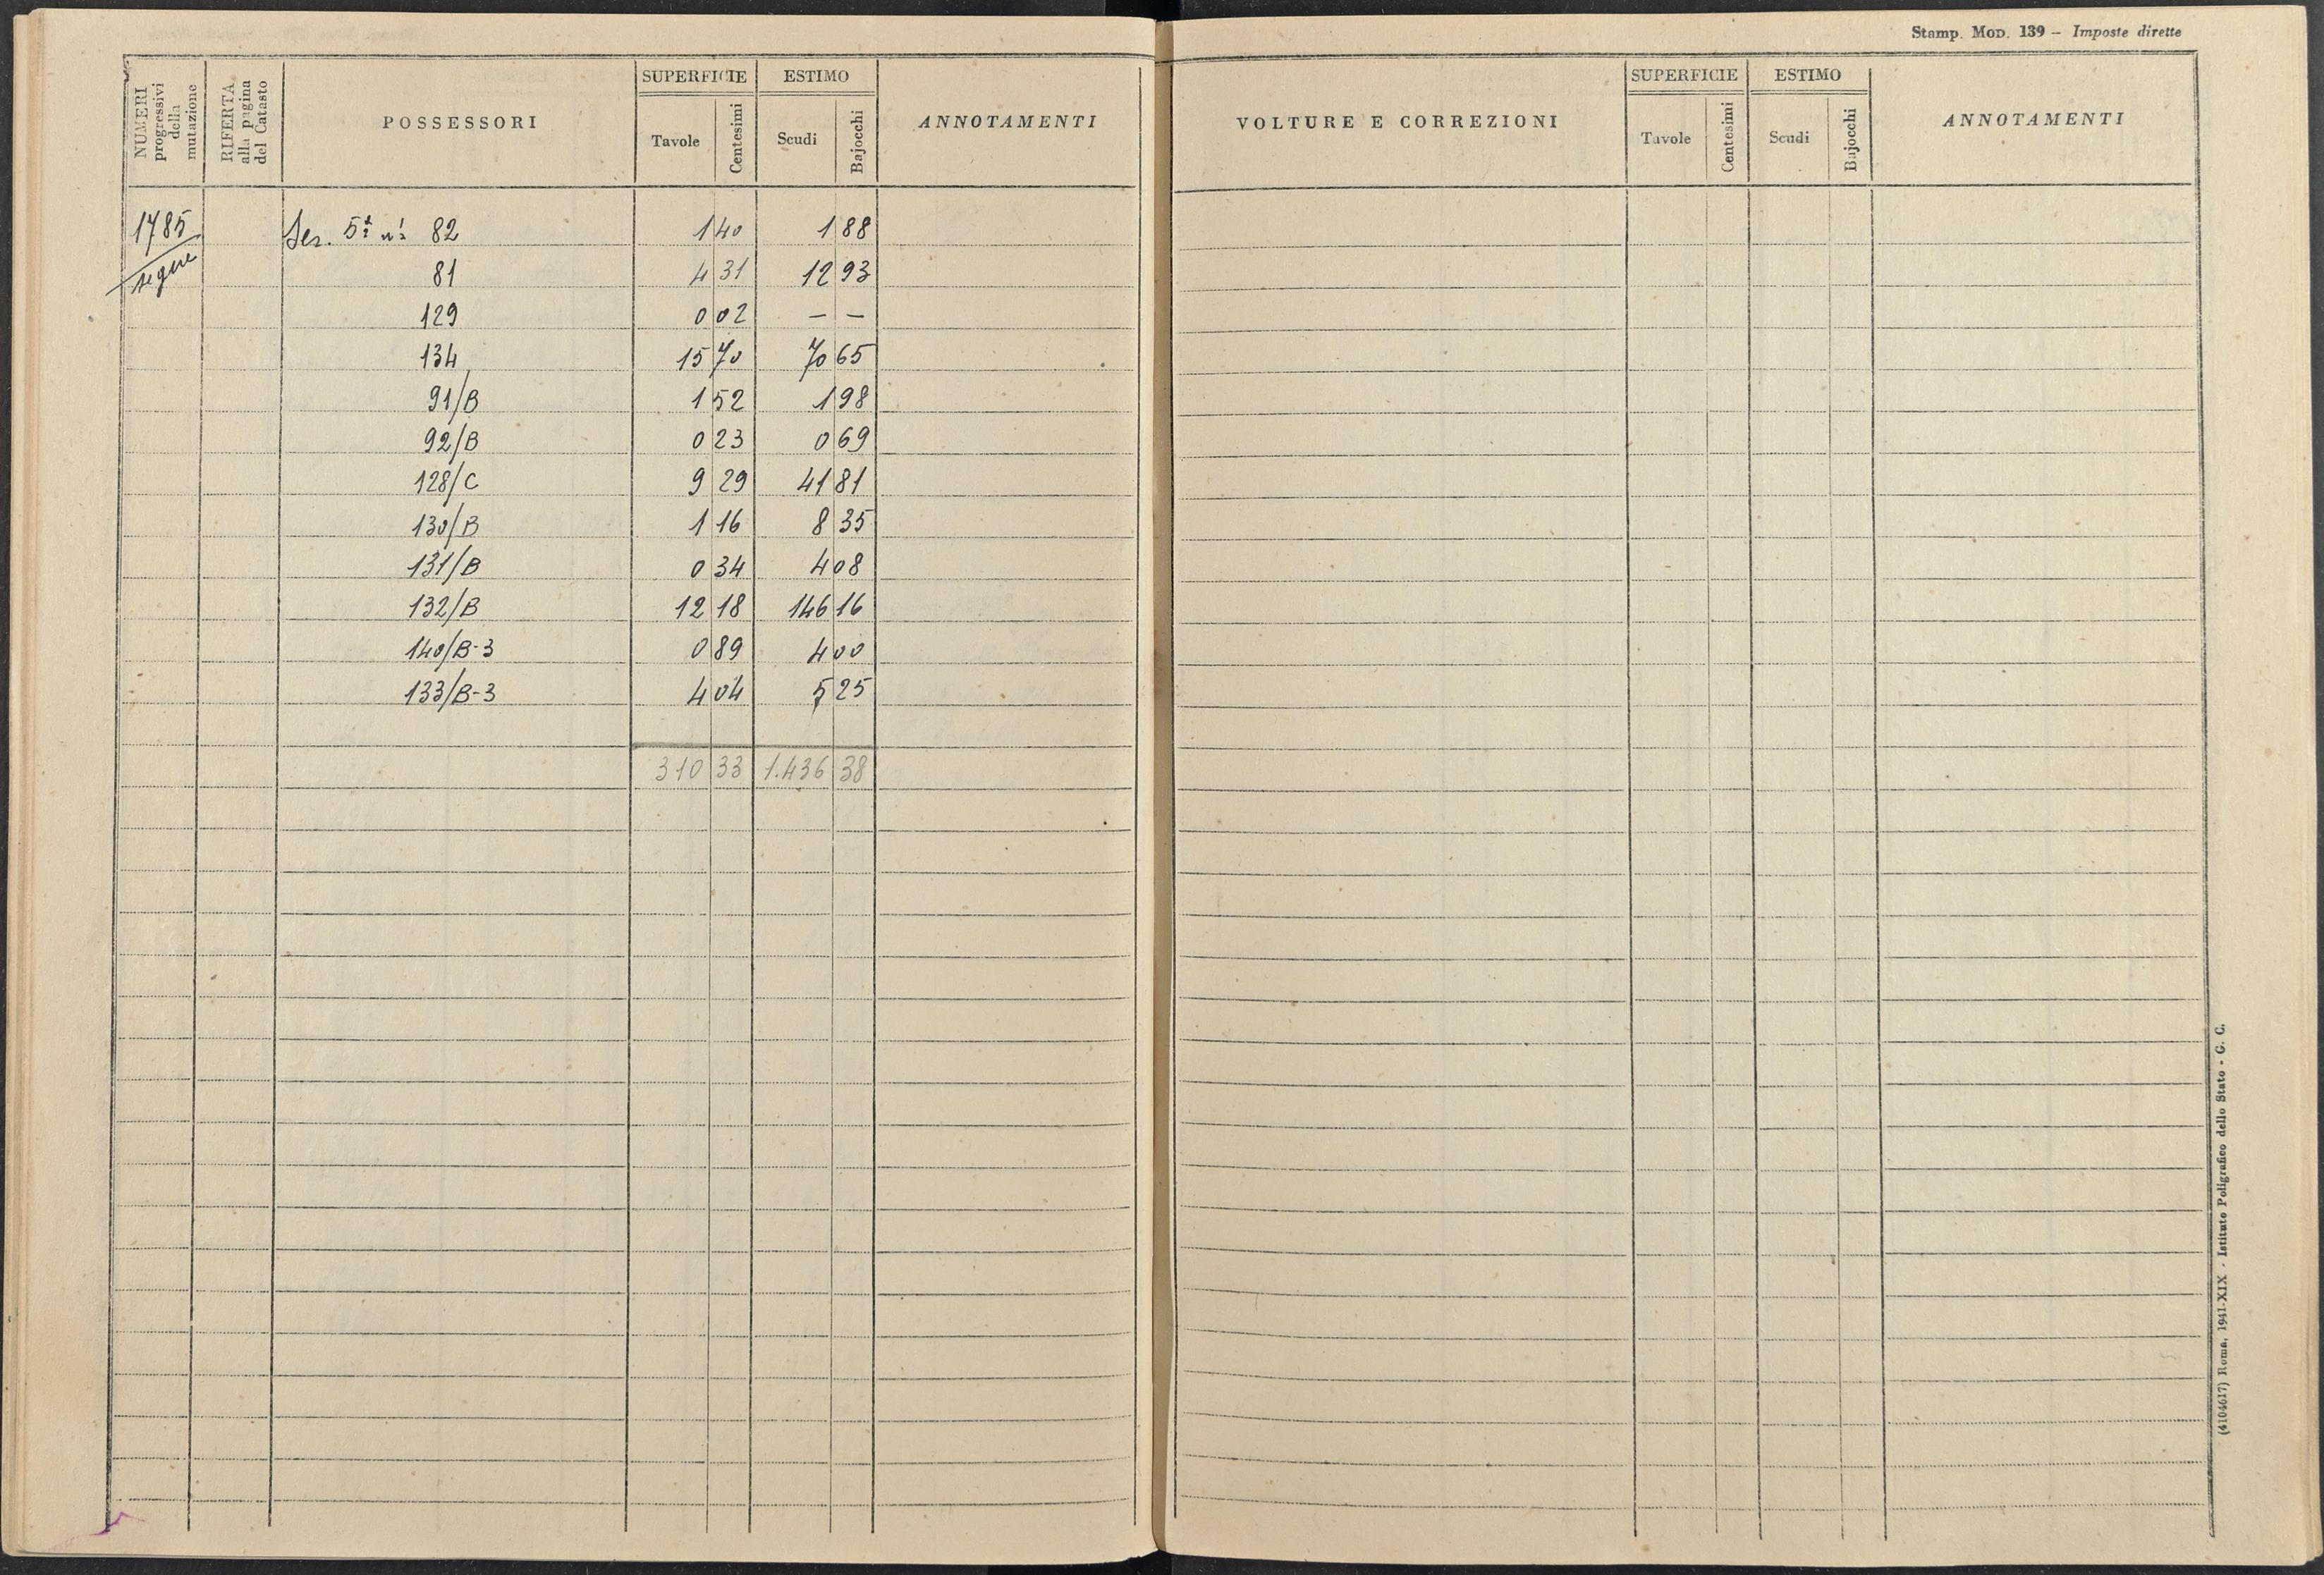 Stamp. MOD. 139 – Imposte dirette
NUMERI progressivi della mutazione
RIFERTA alla pagina del Catasto
POSSESSORI
SUPERFICIE
Tavole
Centesimi
ESTIMO
Scudi
Bajocchi
ANNOTAMENTI
VOLTURE E CORREZIONI
SUPERFICIE
Tavole
Centesimi
ESTIMO
Scudi
Bajocchi
ANNOTAMENTI
1785 Sez. 5ª nⁱ 82 1 40 1 88
segue 81 4 31 12 93
129 0 02 – –
134 15 70 70 65
91/B 1 52 1 98
92/B 0 23 0 69
128/C 9 29 41 81
130/B 1 16 8 35
131/B 0 34 4 08
132/B 12 18 146 16
140/B-3 0 89 4 00
133/B-3 4 04 5 25
310 33 1.436 38
(4104617) Roma, 1941-XIX - Istituto Poligrafico dello Stato - G. C.